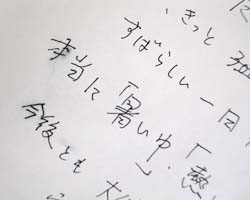 きっと
すばらしい一日
本当に「暑い中」、「熱
今後とも 大